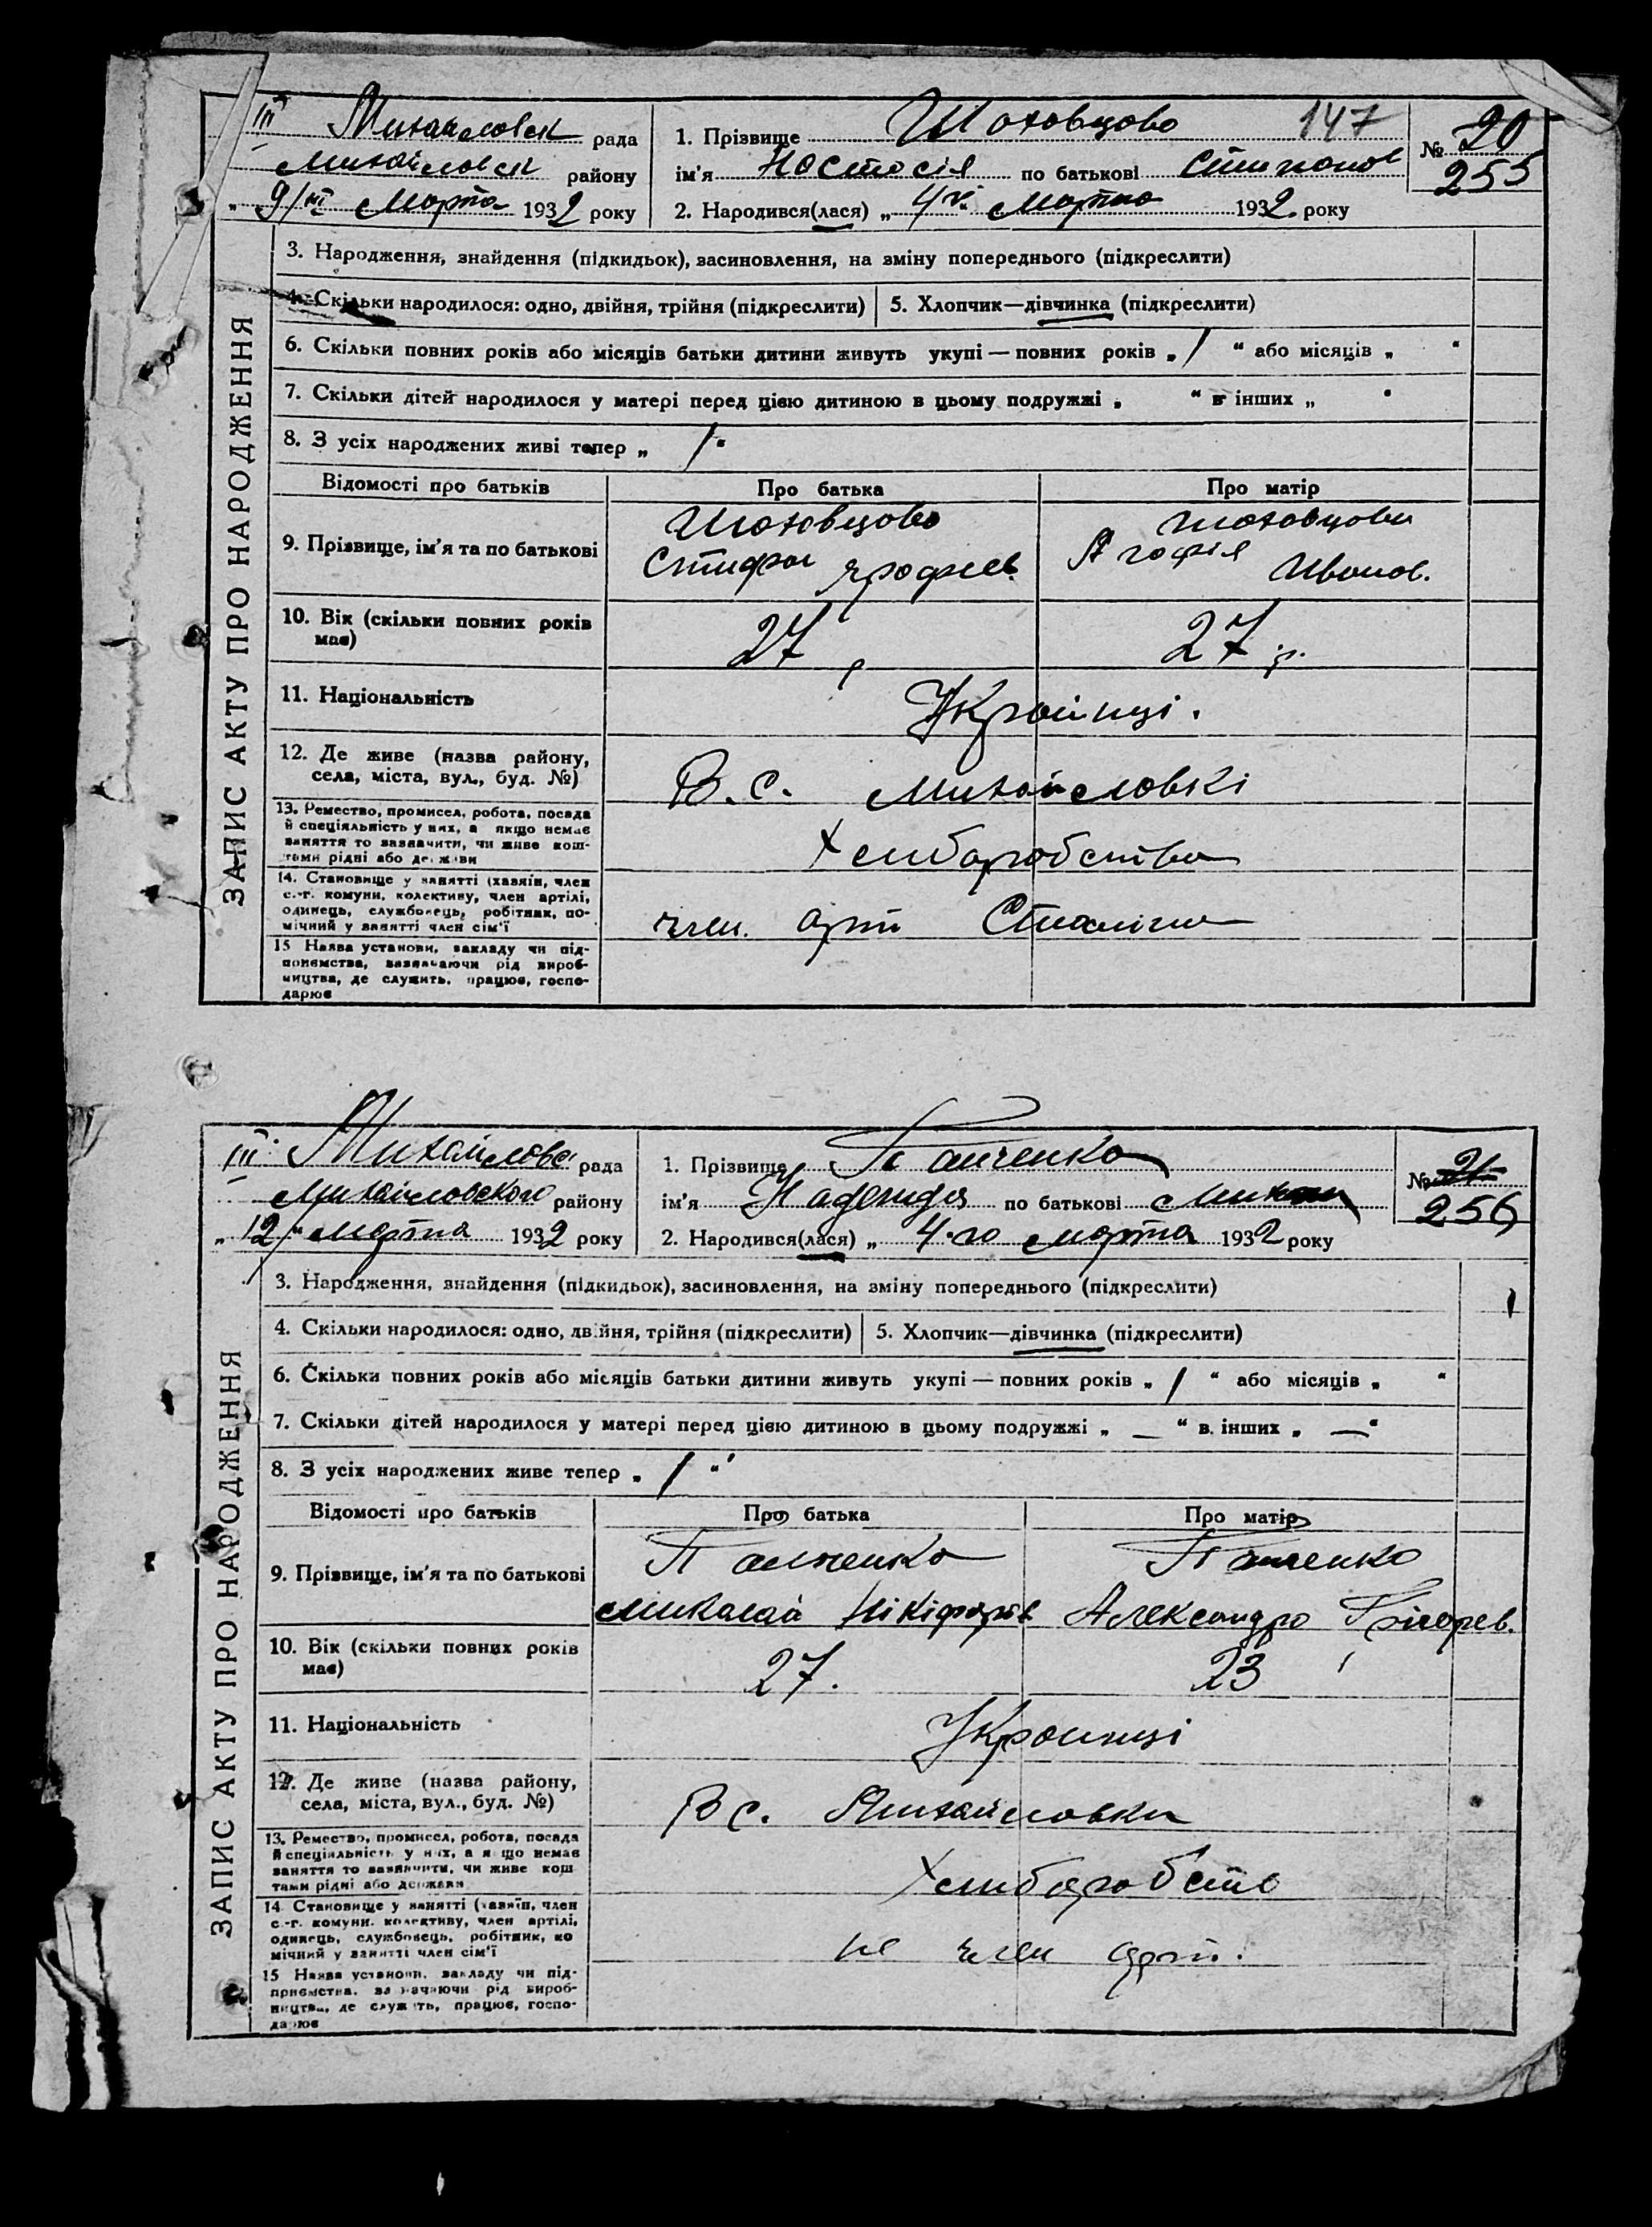 ІІІ Михайловск рада
Михайловск району
9/ІІІ Марта 1932 року
1. Прізвище Шаховцова 147
ім'я Настасія по батькові Стипанов
2. Народився(лася) „ 4го марта 1932 року
№ 20
255
ЗАПИС АКТУ ПРО НАРОДЖЕННЯ
3. Народження, знайдення (підкидьок), засиновлення, на зміну попереднього (підкреслити)
4. Скільки народилося: одно, двійня, трійня (підкреслити) 5. Хлопчик—дівчинка (підкреслити)
6. Скільки повних років або місяців батьки дитини живуть укупі — повних років „ / “ або місяців „ “
7. Скільки дітей народилося у матері перед цією дитиною в цьому подружжі „ “ в інших „ “
8. З усіх народжених живі тепер „ / “
Відомості про батьків Про батька Про матір
9. Прізвище, ім'я та по батькові
Шаховцова Шаховцова
Стифан Агафія Иванов.
10. Вік (скільки повних років має) 27 27 р.
11. Національність Україинці.
12. Де живе (назва району, села, міста, вул., буд. №) В. с. Михайловкі
13. Ремество, промисел, робота, посада
й спеціяльність у них, а якщо немає
заняття то зазначити, чи живе кош-
тами рідні або держави
Хлибаробства
14. Становище у занятті (хазяїн, член
с.-г. комуни, колективу, член артілі,
одинець, службовець, робітник, по-
мічний у занятті член сім'ї
член. арт Сталіна
15 Назва установи, закладу чи під-
приємства, зазначаючи рід вироб-
ництва, де служить, працює, госпо-
дарює
ІІІ Михайловс рада
Михайловского району
„ 12 “ марта 1932 року
1. Прізвище Панченко
ім'я Надежда по батькові
2. Народився(лася) „ 4.го марта 1932 року
№ 21
256
ЗАПИС АКТУ ПРО НАРОДЖЕННЯ
3. Народження, знайдення (підкидьок), засиновлення, на зміну попереднього (підкреслити)
4. Скільки народилося: одно, двійня, трійня (підкреслити) 5. Хлопчик—дівчинка (підкреслити)
6. Скільки повних років або місяців батьки дитини живуть укупі — повних років „ / “ або місяців „ “
7. Скільки дітей народилося у матері перед цією дитиною в цьому подружжі „ — “ в інших „ — “
8. З усіх народжених живе тепер „ / “
Відомості про батьків Про батька Про матір
9. Прізвище, ім'я та по батькові
Панченко Панченко
Миколай Нікіфоров Александра Грігорев.
10. Вік (скільки повних років має) 27. 23
11. Національність Украинці
12. Де живе (назва району, села, міста, вул., буд. №) В с. Михайловки
13. Ремество, промисел, робота, посада
й спеціяльність у них, а якщо немає
заняття то зазначити, чи живе кош
тами рідні або держави
Хлибаробств
14. Становище у занятті (хазяїн, член
с.-г. комуни, колективу, член артілі,
одинець, службовець, робітник, по
мічний у занятті член сім'ї
не член арт.
15 Назва установи, закладу чи під-
приємства, зазначаючи рід вироб-
ництва, де служить, працює, госпо-
дарює